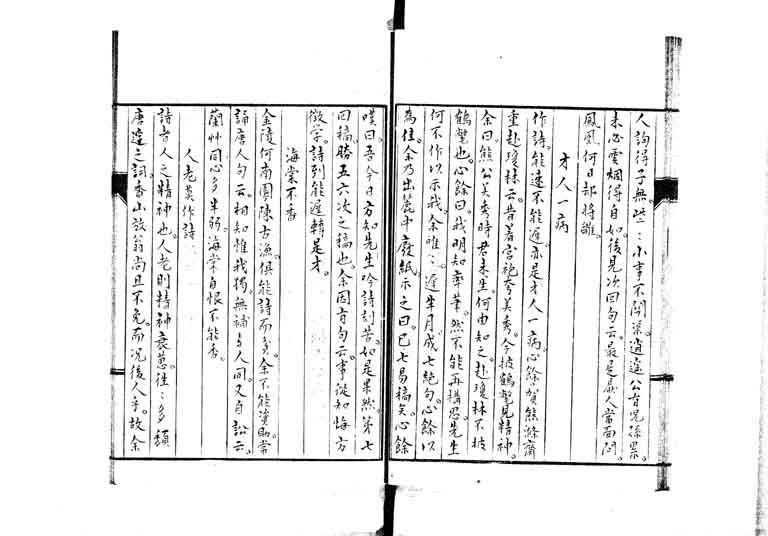 人詢得子無。些〻小事不關渠。逍遙公有兒孫累。
未必雲烟得自如。後見次回句云。最是厭人當面問。
鳳凰何日却將雛。
才人一病
作詩。能速不能遲。亦是才人一病。心餘賀熊滌齋
重赴瓊林云。昔著宮袍夸美秀。今披鶴氅見精神。
余曰。熊公美秀時君未生。何由知之。赴瓊林不披
鶴氅也。心餘曰。我明知率筆。然不能再構思。先生
何不作以示我。余唯〻。遲半月。成七絕句。心餘以
為佳。余乃出簏中廢紙示之曰。已七易稿矣。心餘
嘆曰。吾今日方知先生吟詩刻苦。如是果然。第七
回稿。勝五六次之稿也。余因有句云。事從知悔方
徵學。詩到能遲轉是才。
海棠不香
金陵何南園陳古漁。俱能詩而貧。余不能資助。常
誦唐人句云。相知惟我獨。無補与人同。又自訟云。
蘭艸同心多半弱。海棠自恨不能香。
人老莫作詩
詩者人之精神也。人老則精神衰葸。往〻多頹
唐漫之詞。香山放翁尚且不免。而況後人乎。故余